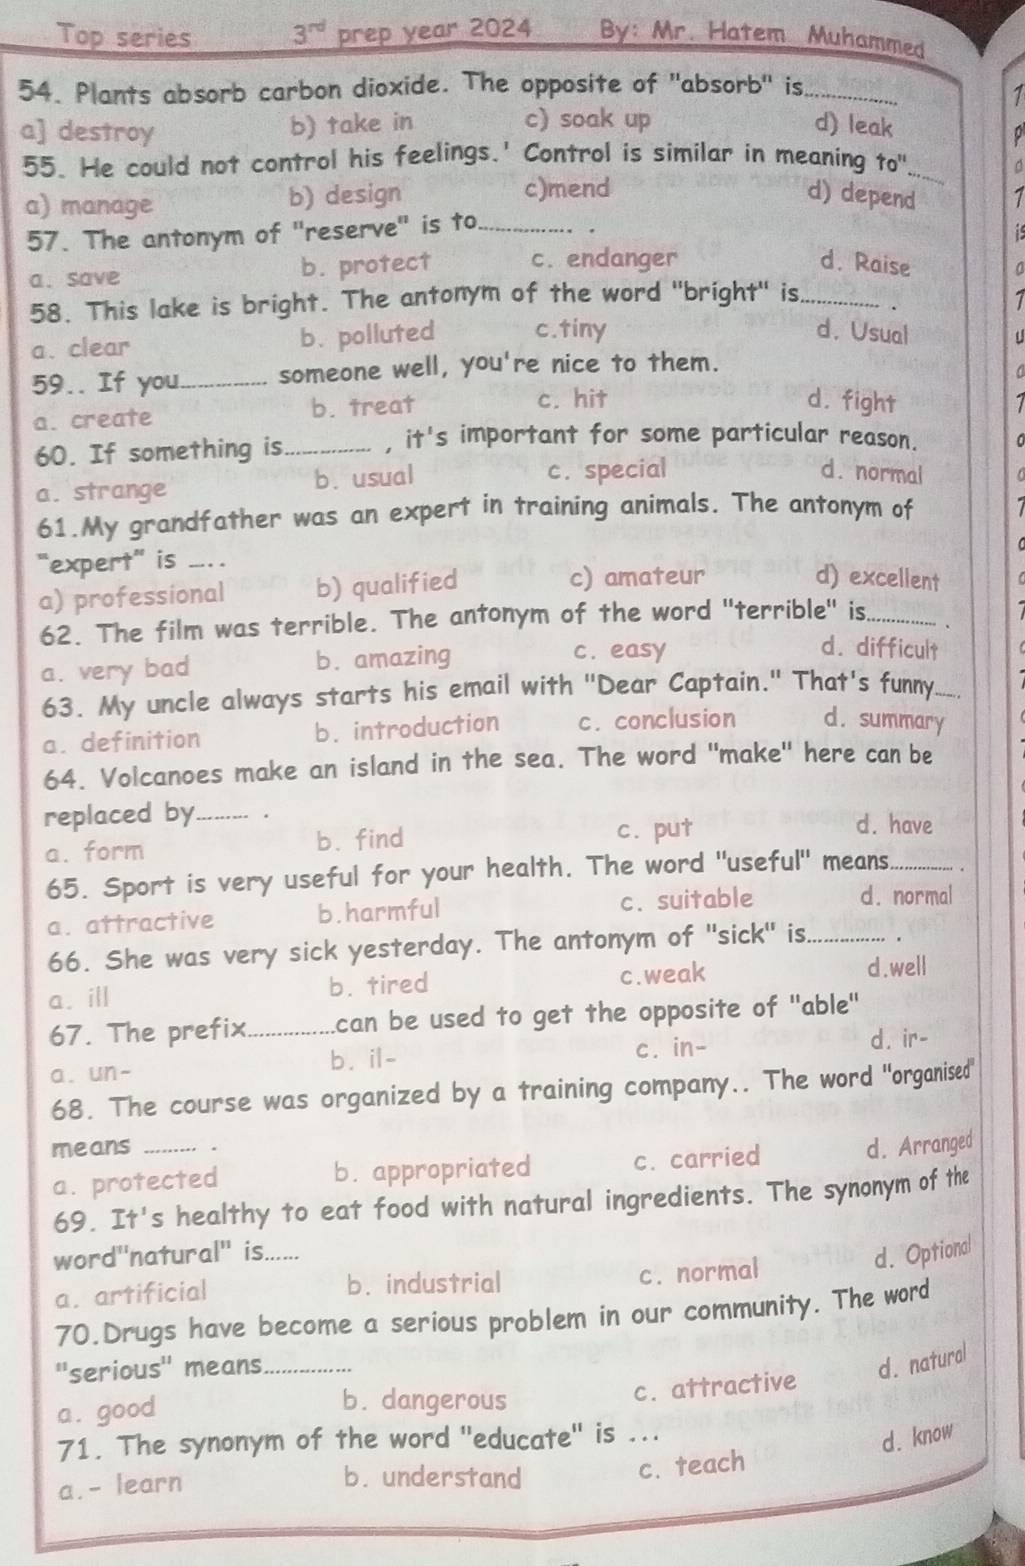 Top series 3rd prep year 2024 By: Mr. Hatem Muhammed
54. Plants absorb carbon dioxide. The opposite of "absorb" is..............
a] destroy b) take in c) soak up d) leak
55. He could not control his feelings.' Control is similar in meaning to"......
a) manage b) design c)mend d) depend
57. The antonym of "reserve" is to............... .
a. save b. protect c. endanger d. Raise
58. This lake is bright. The antonym of the word "bright" is............. .
a. clear b. polluted c.tiny d. Usual
59.. If you.............. someone well, you're nice to them.
a. create b. treat c. hit d. fight
60. If something is.............. , it's important for some particular reason.
a. strange b. usual c. special d. normal
61.My grandfather was an expert in training animals. The antonym of
"expert" is .....
a) professional b) qualified c) amateur d) excellent
62. The film was terrible. The antonym of the word "terrible" is............ .
a. very bad b. amazing c. easy d. difficult
63. My uncle always starts his email with "Dear Captain." That's funny......
a. definition b. introduction c. conclusion d. summary
64. Volcanoes make an island in the sea. The word "make" here can be
replaced by......... .
a. form b. find c. put d. have
65. Sport is very useful for your health. The word "useful" means............ .
a. attractive b.harmful c. suitable d. normal
66. She was very sick yesterday. The antonym of "sick" is............. .
a. ill b. tired c.weak d.well
67. The prefix...............can be used to get the opposite of "able"
a. un- b. il- c. in- d. ir-
68. The course was organized by a training company.. The word "organised"
means ......... .
a. protected b. appropriated c. carried d. Arranged
69. It's healthy to eat food with natural ingredients. The synonym of the
word"natural" is......
a. artificial b. industrial c. normal d. Optional
70.Drugs have become a serious problem in our community. The word
"serious" means...............
a. good b. dangerous c. attractive d. natural
71. The synonym of the word "educate" is ...
a.- learn b. understand c. teach d. know